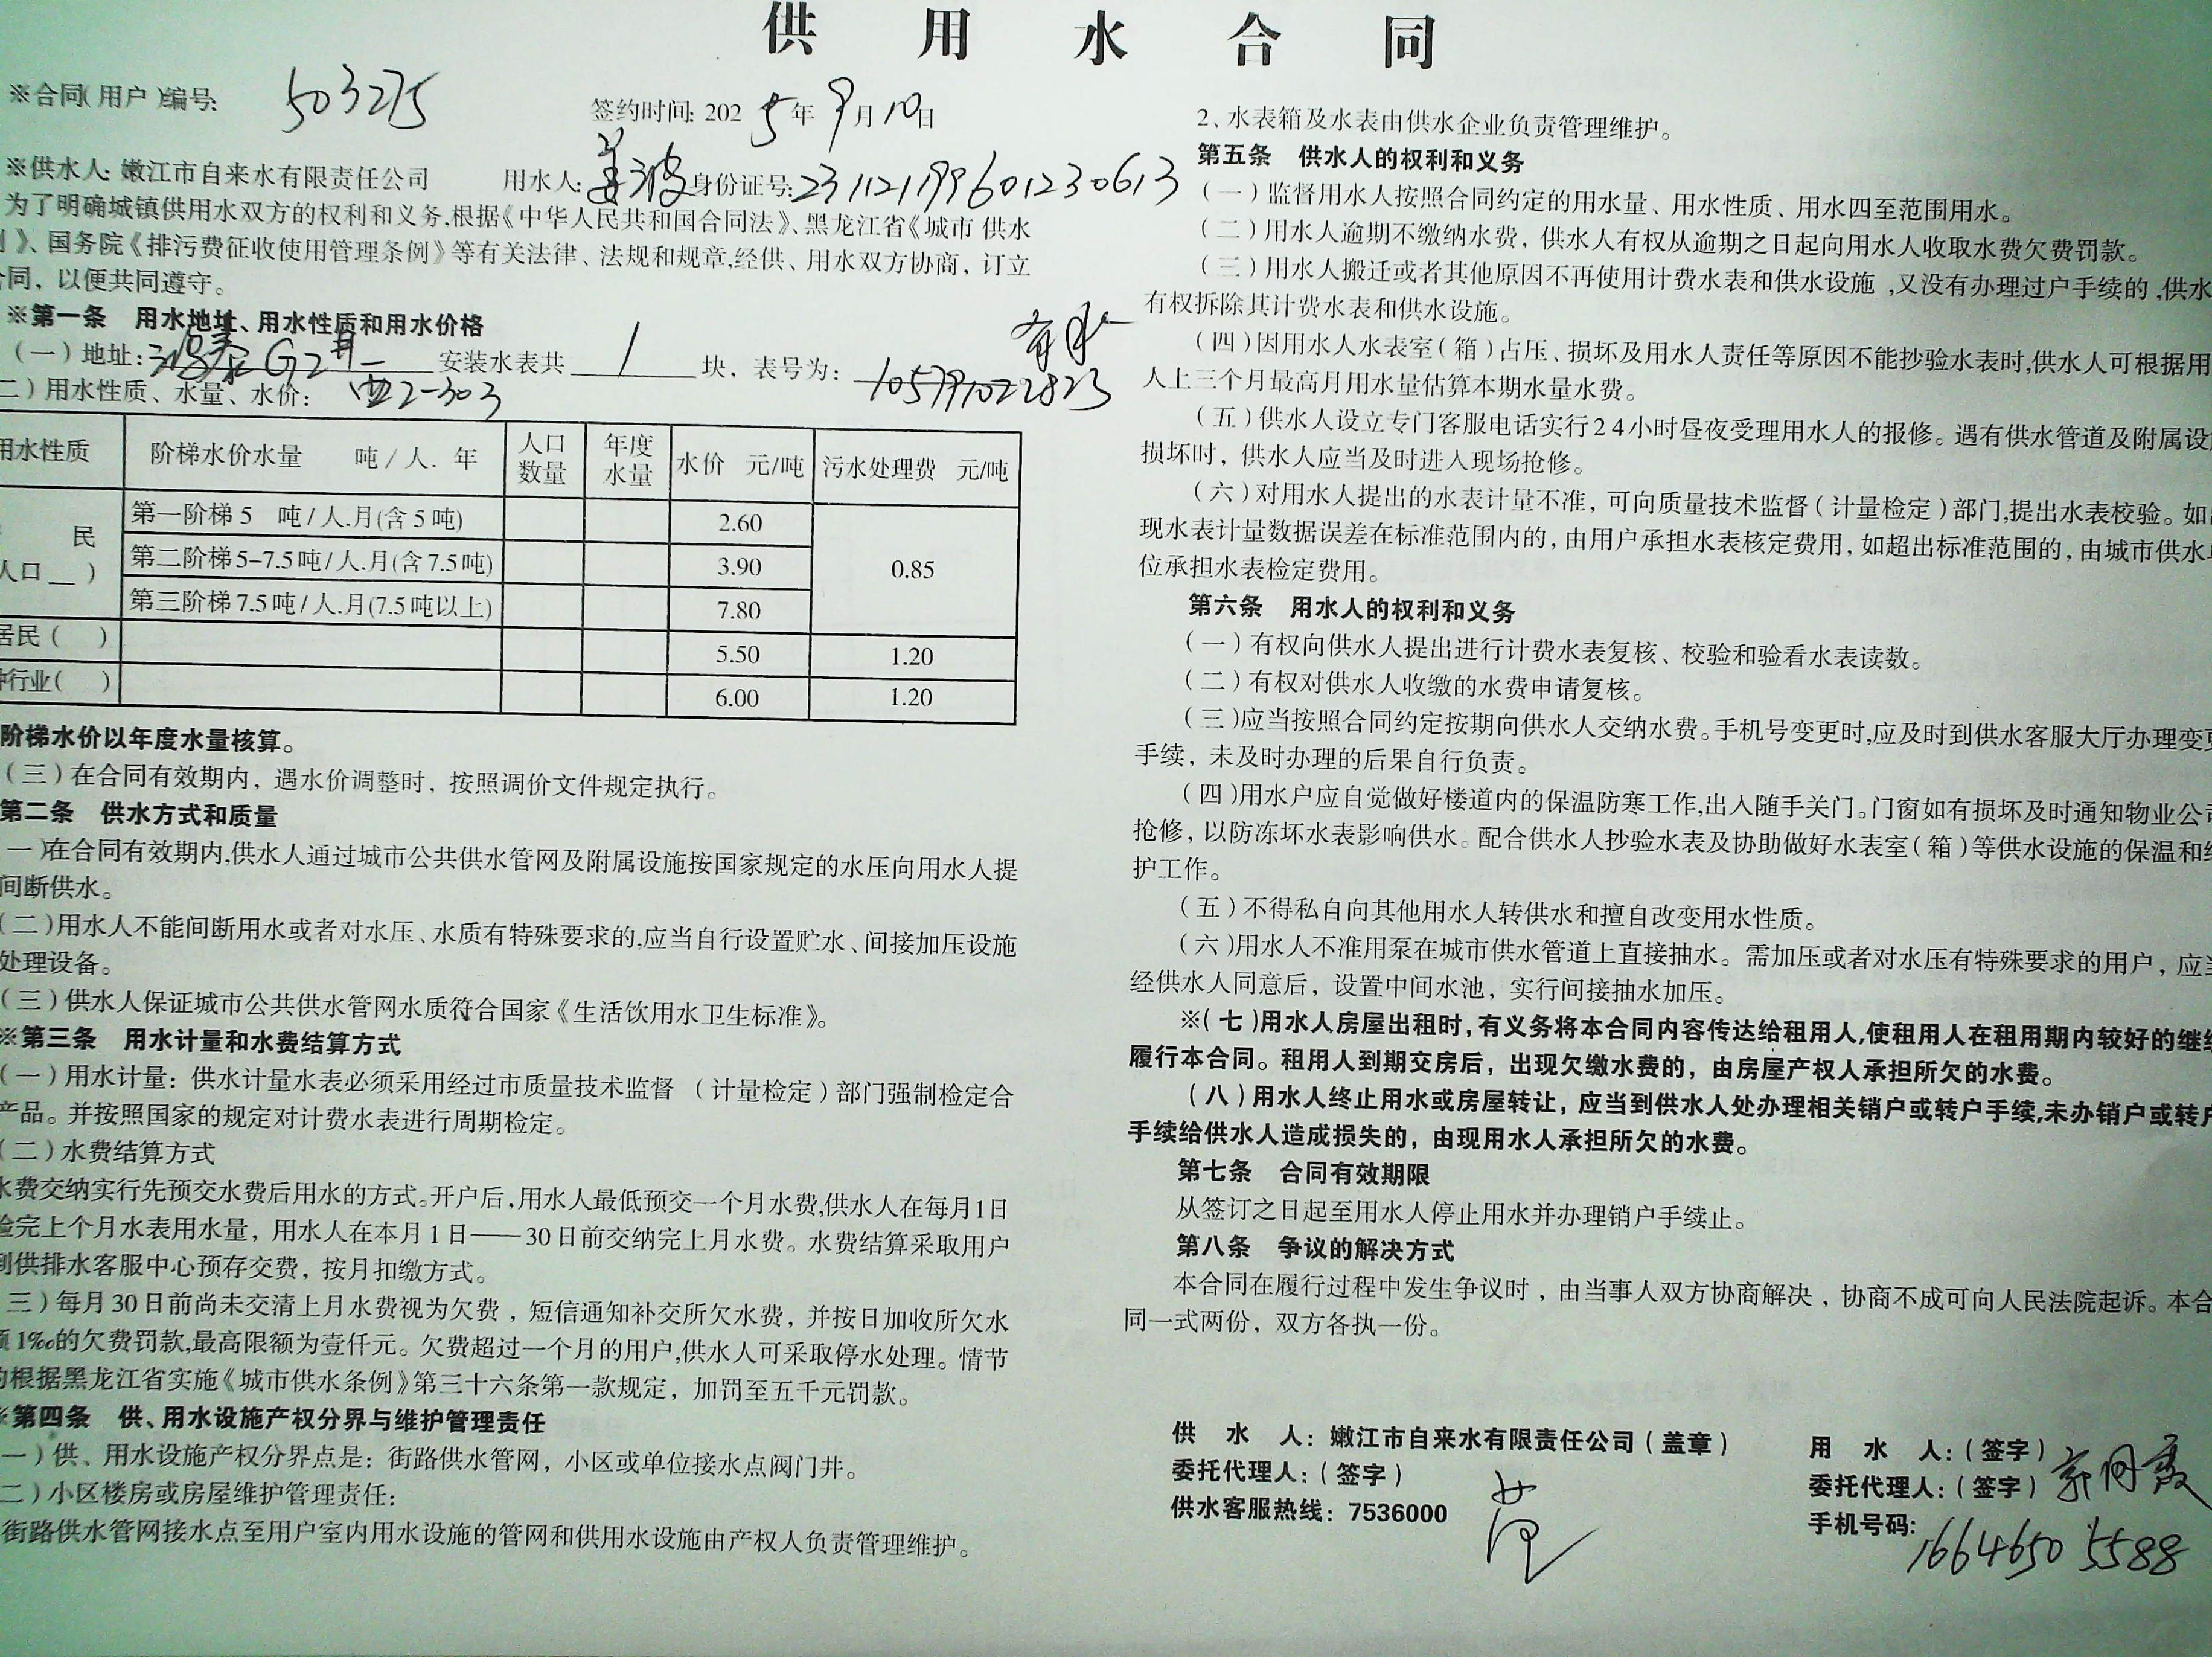 供用水合同
※合同(用户)编号: 503275 签约时间: 2025年9月10日
※供水人: 嫩江市自来水有限责任公司 用水人: 姜波 身份证号: 231121199601230613
为了明确城镇供用水双方的权利和义务,根据《中华人民共和国合同法》、黑龙江省《城市 供水
》、国务院《排污费征收使用管理条例》等有关法律、法规和规章,经供、用水双方协商，订立
同，以便共同遵守。
※第一条 用水地址、用水性质和用水价格
(一)地址: G2 安装水表共 1 块，表号为: 105791022823
二)用水性质、水量、水价: 2-303
用水性质 阶梯水价水量 吨/人.年 人口数量 年度水量 水价 元/吨 污水处理费 元/吨
民
人口__)
第一阶梯 5 吨/人.月(含5吨) 2.60 0.85
第二阶梯5-7.5吨/人.月(含7.5吨) 3.90
第三阶梯7.5吨/人.月(7.5吨以上) 7.80
居民( ) 5.50 1.20
行业( ) 6.00 1.20
阶梯水价以年度水量核算。
(三)在合同有效期内，遇水价调整时，按照调价文件规定执行。
第二条 供水方式和质量
一)在合同有效期内,供水人通过城市公共供水管网及附属设施按国家规定的水压向用水人提
间断供水。
(二)用水人不能间断用水或者对水压、水质有特殊要求的,应当自行设置贮水、间接加压设施
处理设备。
(三)供水人保证城市公共供水管网水质符合国家《生活饮用水卫生标准》。
※第三条 用水计量和水费结算方式
(一)用水计量：供水计量水表必须采用经过市质量技术监督 (计量检定)部门强制检定合
产品。并按照国家的规定对计费水表进行周期检定。
(二)水费结算方式
水费交纳实行先预交水费后用水的方式。开户后,用水人最低预交一个月水费,供水人在每月1日
验完上个月水表用水量，用水人在本月1日——30日前交纳完上月水费。水费结算采取用户
到供排水客服中心预存交费，按月扣缴方式。
三)每月30日前尚未交清上月水费视为欠费，短信通知补交所欠水费，并按日加收所欠水
1‰的欠费罚款,最高限额为壹仟元。欠费超过一个月的用户,供水人可采取停水处理。情节
的根据黑龙江省实施《城市供水条例》第三十六条第一款规定，加罚至五千元罚款。
※第四条 供、用水设施产权分界与维护管理责任
一)供、用水设施产权分界点是：街路供水管网，小区或单位接水点阀门井。
二)小区楼房或房屋维护管理责任:
街路供水管网接水点至用户室内用水设施的管网和供用水设施由产权人负责管理维护。
2、水表箱及水表由供水企业负责管理维护。
第五条 供水人的权利和义务
(一)监督用水人按照合同约定的用水量、用水性质、用水四至范围用水。
(二)用水人逾期不缴纳水费，供水人有权从逾期之日起向用水人收取水费欠费罚款。
(三)用水人搬迁或者其他原因不再使用计费水表和供水设施,又没有办理过户手续的,供水
有权拆除其计费水表和供水设施。
(四)因用水人水表室(箱)占压、损坏及用水人责任等原因不能抄验水表时,供水人可根据用
人上三个月最高月用水量估算本期水量水费。
(五)供水人设立专门客服电话实行24小时昼夜受理用水人的报修。遇有供水管道及附属设
损坏时，供水人应当及时进入现场抢修。
(六)对用水人提出的水表计量不准，可向质量技术监督(计量检定)部门,提出水表校验。如
现水表计量数据误差在标准范围内的，由用户承担水表核定费用，如超出标准范围的，由城市供水
位承担水表检定费用。
第六条 用水人的权利和义务
(一)有权向供水人提出进行计费水表复核、校验和验看水表读数。
(二)有权对供水人收缴的水费申请复核。
(三)应当按照合同约定按期向供水人交纳水费。手机号变更时,应及时到供水客服大厅办理变
手续，未及时办理的后果自行负责。
(四)用水户应自觉做好楼道内的保温防寒工作,出入随手关门。门窗如有损坏及时通知物业公
抢修，以防冻坏水表影响供水。配合供水人抄验水表及协助做好水表室(箱)等供水设施的保温和
护工作。
(五)不得私自向其他用水人转供水和擅自改变用水性质。
(六)用水人不准用泵在城市供水管道上直接抽水。需加压或者对水压有特殊要求的用户，应
经供水人同意后，设置中间水池，实行间接抽水加压。
※(七)用水人房屋出租时,有义务将本合同内容传达给租用人,使租用人在租用期内较好的继
履行本合同。租用人到期交房后，出现欠缴水费的，由房屋产权人承担所欠的水费。
(八)用水人终止用水或房屋转让，应当到供水人处办理相关销户或转户手续,未办销户或转
手续给供水人造成损失的，由现用水人承担所欠的水费。
第七条 合同有效期限
从签订之日起至用水人停止用水并办理销户手续止。
第八条 争议的解决方式
本合同在履行过程中发生争议时，由当事人双方协商解决，协商不成可向人民法院起诉。本合
同一式两份，双方各执一份。
供 水 人：嫩江市自来水有限责任公司(盖章)
委托代理人：(签字)
供水客服热线：7536000
用 水 人：(签字)
委托代理人：(签字)
手机号码: 16646505588